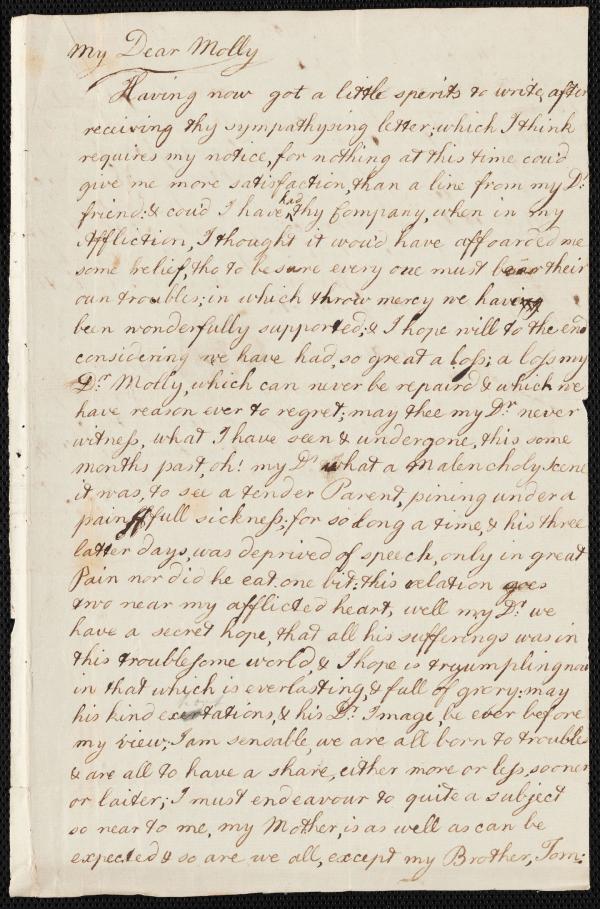 My Dear Molly
Having now got a little sperits to write, after
receiving thy sympathysing letter; which I think
requires my notice, for nothing at this time cou'd
give me more satisfaction, than a line from my Dr.
friend: & cou'd I have had thy Company, when in my
Affliction, I thought it wou'd have affoarded me
some belief, tho to be sure every one must bear their
own troubles; in which throw mercy we have
been wonderfully supported, & I hope will to the end
considering we have had, so great a loss; a loss my
Dr. Molly, which can never be repaird & which we
have reason ever to regret; may thee my Dr. never
witness, what I have seen & undergone, this some
months past, oh! my Dr. what a Malencholy scene
it was, to see a tender Parent, pining under a
painfull sickness; for so long a time, & his three
latter days, was deprived of speech, only in great
Pain nor did he eat one bit: this relation goes
two near my afflicted heart, well my Dr. we
have a secret hope, that all his sufferings was in
this troublesome world, & I hope is truumpling now
in that which is everlasting, & full of grory: may
his kind exertations, & his Dr. Image, be ever before
my view; I am sensable, we are all born to trouble
& are all to have a share, either more or less, sooner
or laiter; I must endeavour to quite a subject
so near to me, my Mother, is as well as can be
expected & so are we all, except my Brother, Tom: